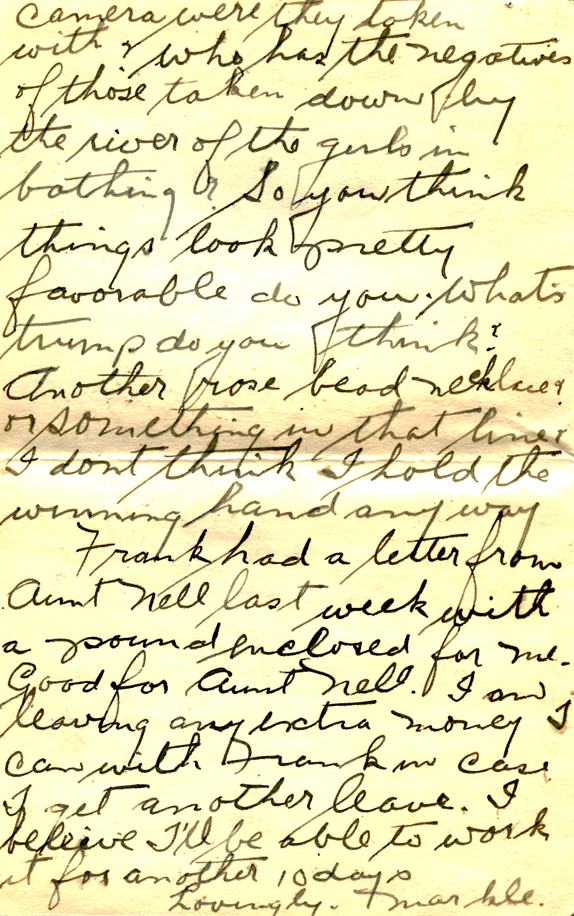 camera were they taken
with & who has the negatives
of those taken down by
the river of the girls in
bathing? So you think
things look pretty
favorable do you. What's
trump do you think?
Another rose bead necklace?
or something in that line?
I dont think I hold the
winning hand any way
Frank had a letter from
Aunt Nell last week with
a pound enclosed for me.
Good for Aunt Nell. I am
leaving any extra money I
can with Frank in case
I get another leave. I
beleive I'll be able to work
it for another 10 days
Lovingly.